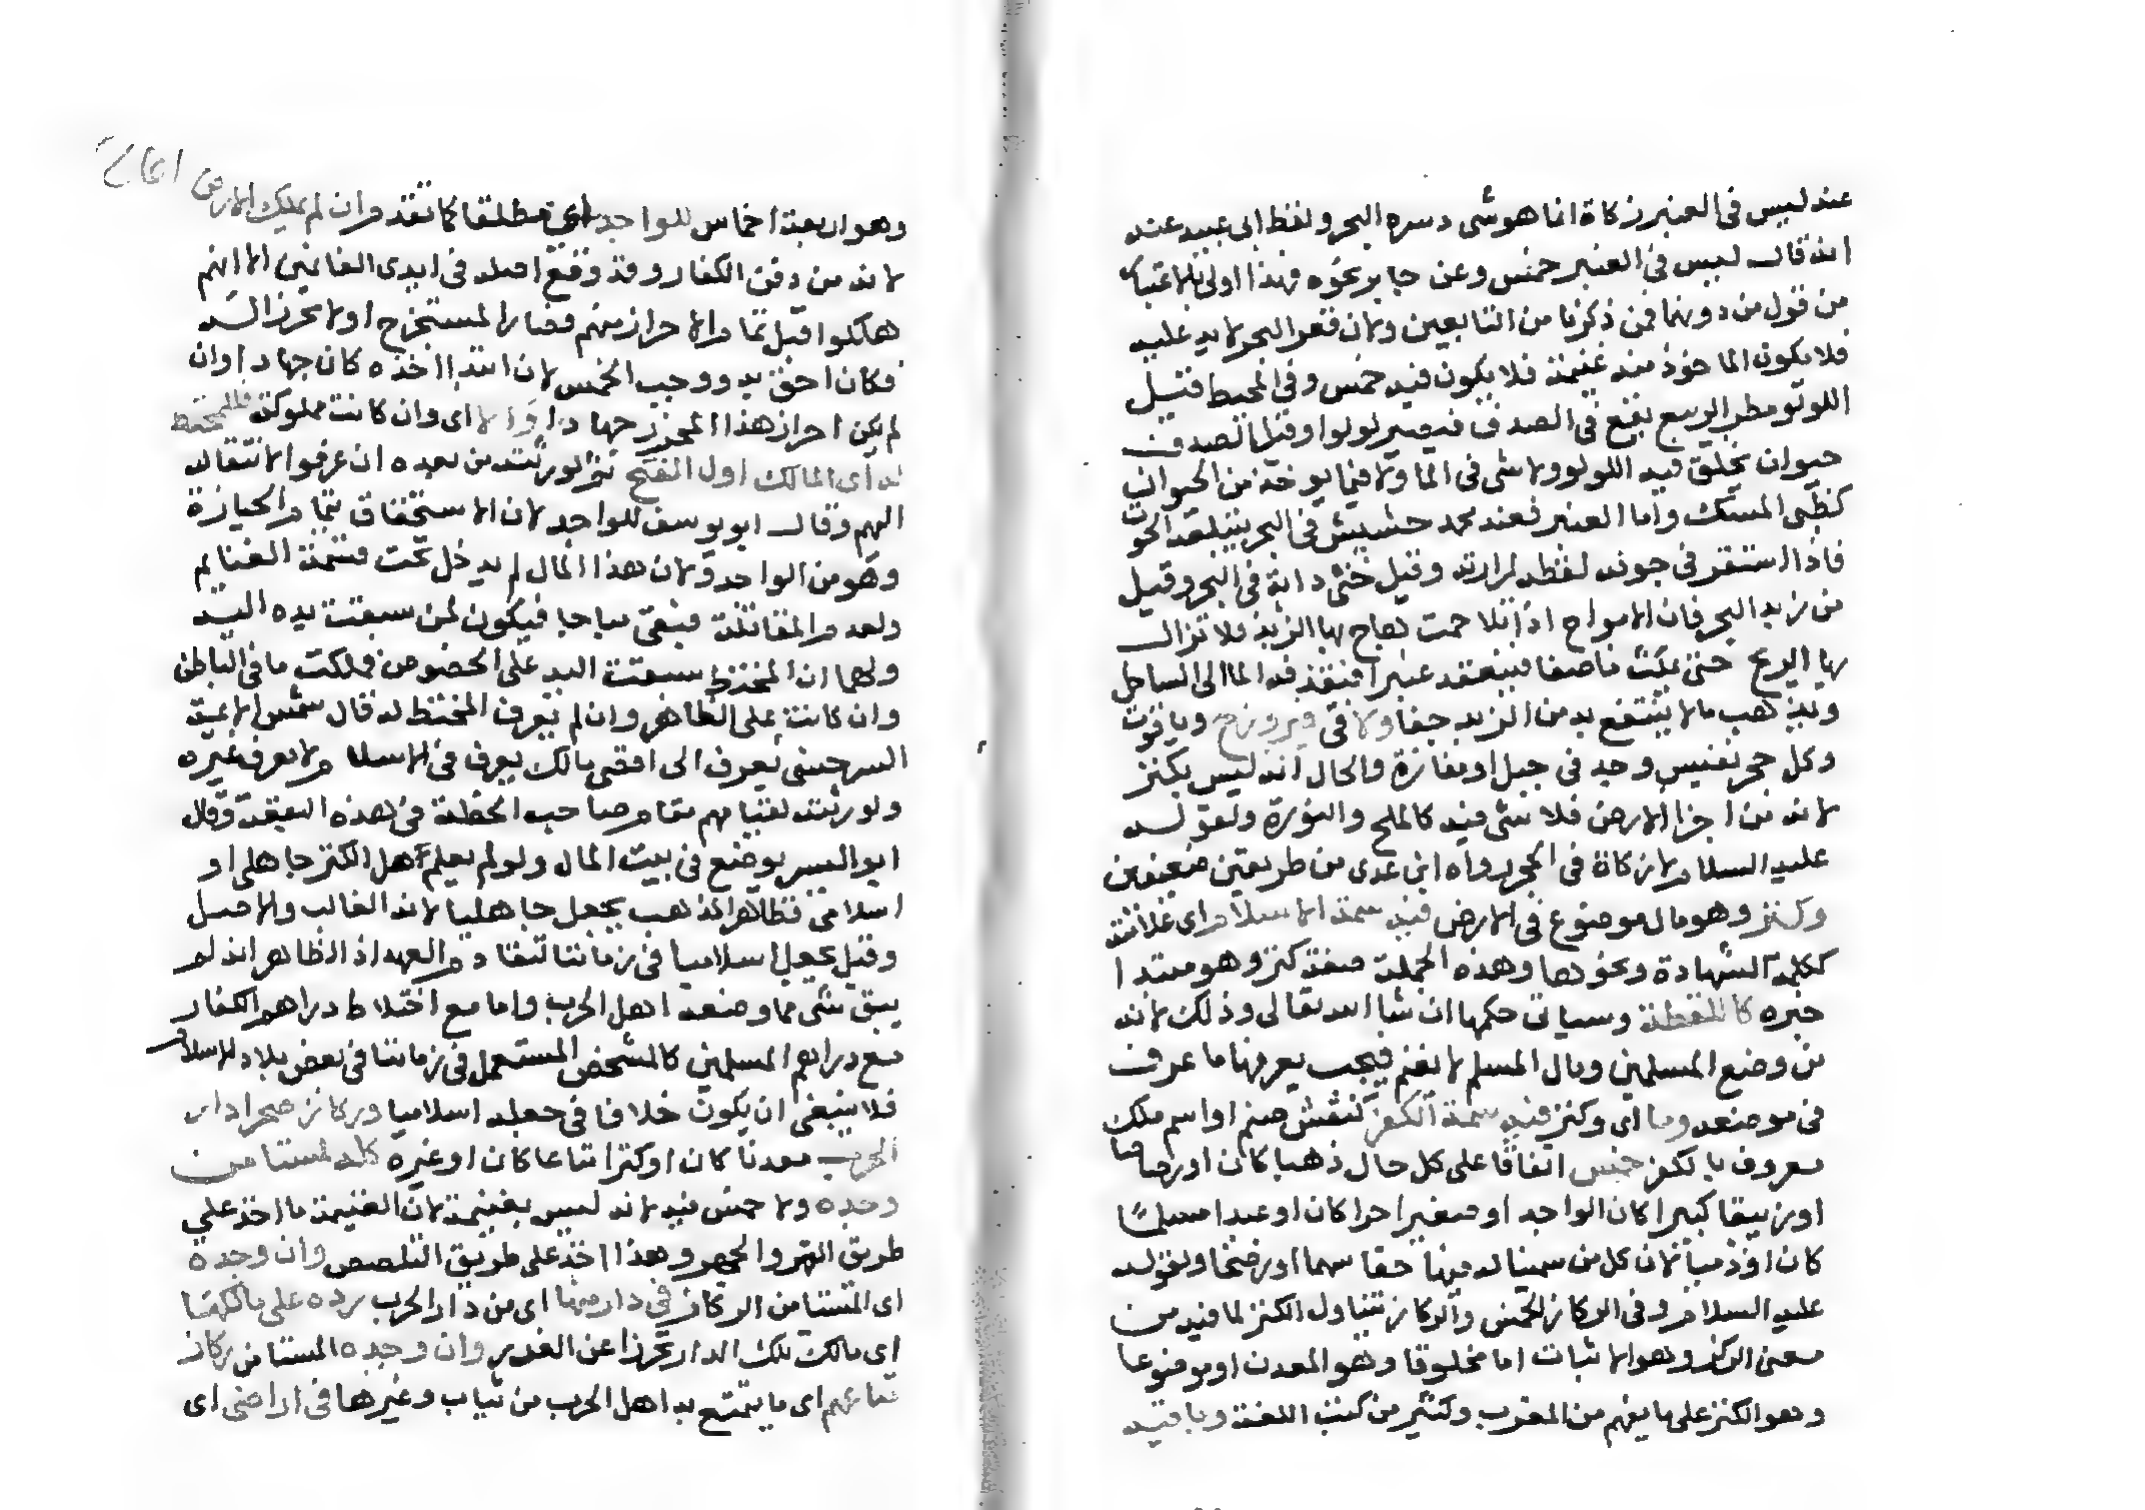 عنه ليس في العنبر زكاة انما هو شي دسره البحر ولفظ ابي عبيد عنه
انه قال ليس في العنبر خمس وعن جابر نحوه فهذا اولى بالاعتبار
من قول من دونهما ممن ذكرنا من التابعين ولان قعر البحر لا يد عليه
فلا يكون الماخوذ منه غنيمة فلا يكون فيه خمس وفي المحيط قيل
اللولو مطر الربيع يقع في الصدف فيصير لولوا وقيل الصدف
حيوان يخلق فيه اللولو ولا شي في الما ولا فيما يوخذ من الحيوان
كظبي المسك واما العنبر فعند محمد حشيش في البحر يبتلعه الحوت
فاذا استقر في جوفه لفظه لمرارته وقيل خثي دابة في البحر وقيل
من زبد البحر فان الامواج اذا تلاطمت تهاج بها الزبد فلا تزال
بها الريح حتى يمكث ما صفا فينعقد عنبرا فيقذفه الما الى الساحل
ويذهب ما لا ينتفع به من الزبد جفا ولا في فيروزج وياقوت
وكل حجر نفيس وجد في جبل او مفازة والحال انه ليس بكنز
لانه من اجزا الارض فلا شي فيه كالملح والنورة ولقوله
عليه السلام لا زكاة في الحجر رواه ابن عدي من طريقين ضعيفين
وكنز وهو مال موضوع في الارض فيه سمة الاسلام اي علامته
ككلمة الشهادة ونحوها وهذه الجملة صفة كنز وهو مبتدا
خبره كاللقطة وسياتي حكمها ان شا الله تعالى وذلك لانه
من وضع المسلمين ومال المسلم لا يغنم فيجب تعريفها ما عرف
في موضعه وما اي وكنز فيه سمة الكفر كنقش صنم او اسم ملك
معروف بالكفر خمس اتفاقا على كل حال ذهبا كان او رصاصا
او زيبقا كبيرا كان الواجد او صغيرا حرا كان او عبدا مسلما
كان او ذميا لان كل من سمينا له فيها حقا سهما او رضخا ولقوله
عليه السلام وفي الركاز الخمس والركاز يتناول الكنز لما فيه من
معنى الركز وهو الاثبات اما مخلوقا وهو المعدن او موضوعا
وهو الكنز على ما يفهم من المغرب وكثير من كتب اللغة وباقيه
وهو اربعة اخماس للواجد اي مطلقا كما تقدم ان لم يملك الارض
لانه من دفن الكفار وقد وقع اصله في ايدي الغانمين الا انهم
هلكوا قبل تمام الاحراز منهم فصار المستخرج اولا محرز اله
فكان احق به ووجب الخمس لان ابتدا اخذه كان جهادا وان
لم يكن احراز هذا المحرز جهادا والا اي وان كانت مملوكة فللمختط
له اي المالك اول الفتح ثم لورثته من بعده ان عرفوا لانتقاله
اليهم وقال ابو يوسف للواجد لان الاستحقاق بتمام الحيازة
وهو من الواجد ولان هذا المال لم يدخل تحت قسمة الغنايم
لعدم المقاتلة فبقي مباحا فيكون لمن سبقت يده اليه
ولهما ان المختط سبقت اليد على الخصوص فملكت ما في الباطن
وان كانت على الظاهر وان لم يعرف المختط له قال شمس الايمة
السرخسي يعرف الى اقصى مالك يعرف في الاسلام ولا يعرف غيره
ولورثته لقيامهم مقام صاحب الخطة في هذه البقعة وقال
ابو اليسر يوضع في بيت المال ولو لم يعلم اهل الكنز جاهلي او
اسلامي فظاهر المذهب يجعل جاهليا لانه الغالب والاصل
وقيل يجعل اسلاميا في زماننا لتقادم العهد اذ الظاهر انه لم
يبق شي مما وضعه اهل الحرب واما مع اختلاط دراهم الكفار
مع دراهم المسلمين كالمشخص المستعمل في زماننا في بعض بلاد الاسلام
فلا ينبغي ان يكون خلافا في جعله اسلاميا وركاز صحرا دار
الحرب معدنا كان او كنزا متاعا كان او غيره كله لمستامن
وجده ولا خمس فيه لانه ليس بغنيمة لان الغنيمة ما اخذ على
طريق القهر والجهر وهذا اخذ على طريق التلصص وان وجده
اي المستامن الركاز في دار منها اي من دار الحرب رده على مالكها
اي مالك تلك الدار تحرزا عن الغدر وان وجده المستامن ركاز
متاعهم اي ما يتمتع به اهل الحرب من ثياب وغيرها في اراضي اي